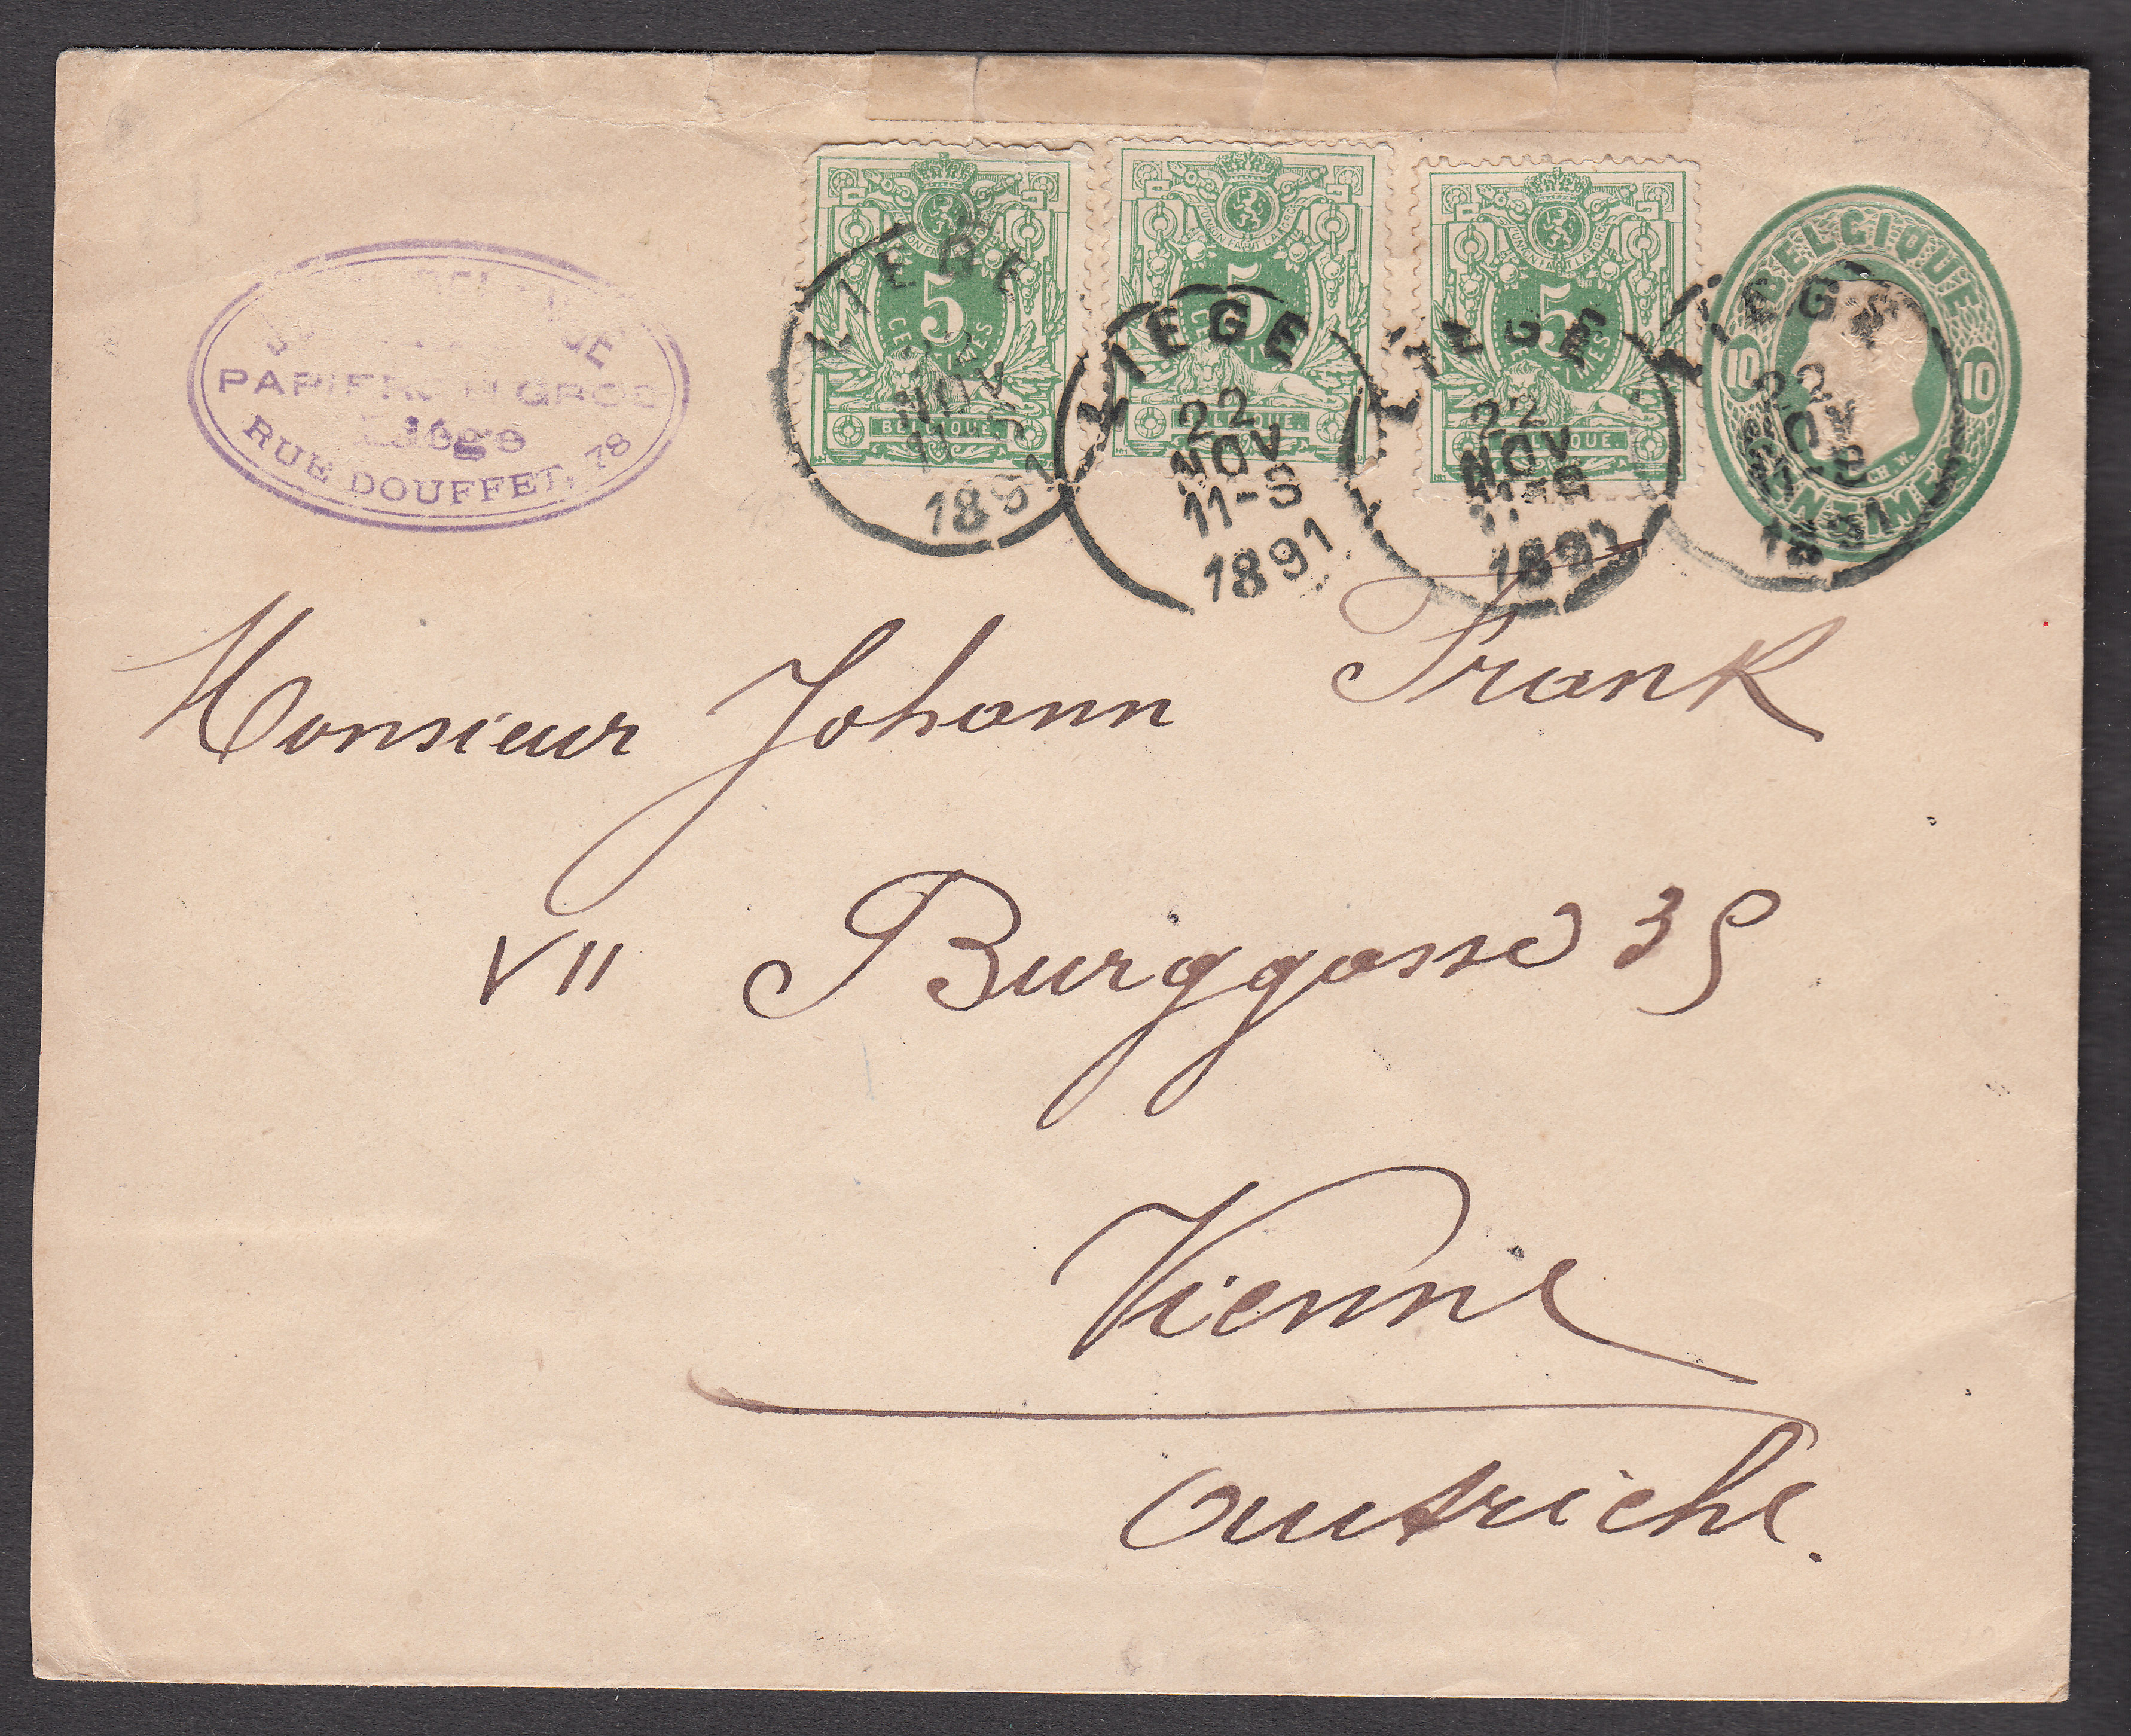 PAPIERS EN GROS
Liége
RUE DOUFFET, 78
5
CENTIMES
BELGIQUE.
5
BELGIQUE.
5
BELGIQUE.
BELGIQUE
10 10
CENTIMES
LIEGE
22
NOV
11-S
1891
LIEGE
22
NOV
11-S
1891
LIEGE
22
NOV
11-S
1891
LIEGE
22
NOV
1891
Monsieur Johann Frank
VII Burggasse 39
Vienne
Autriche.